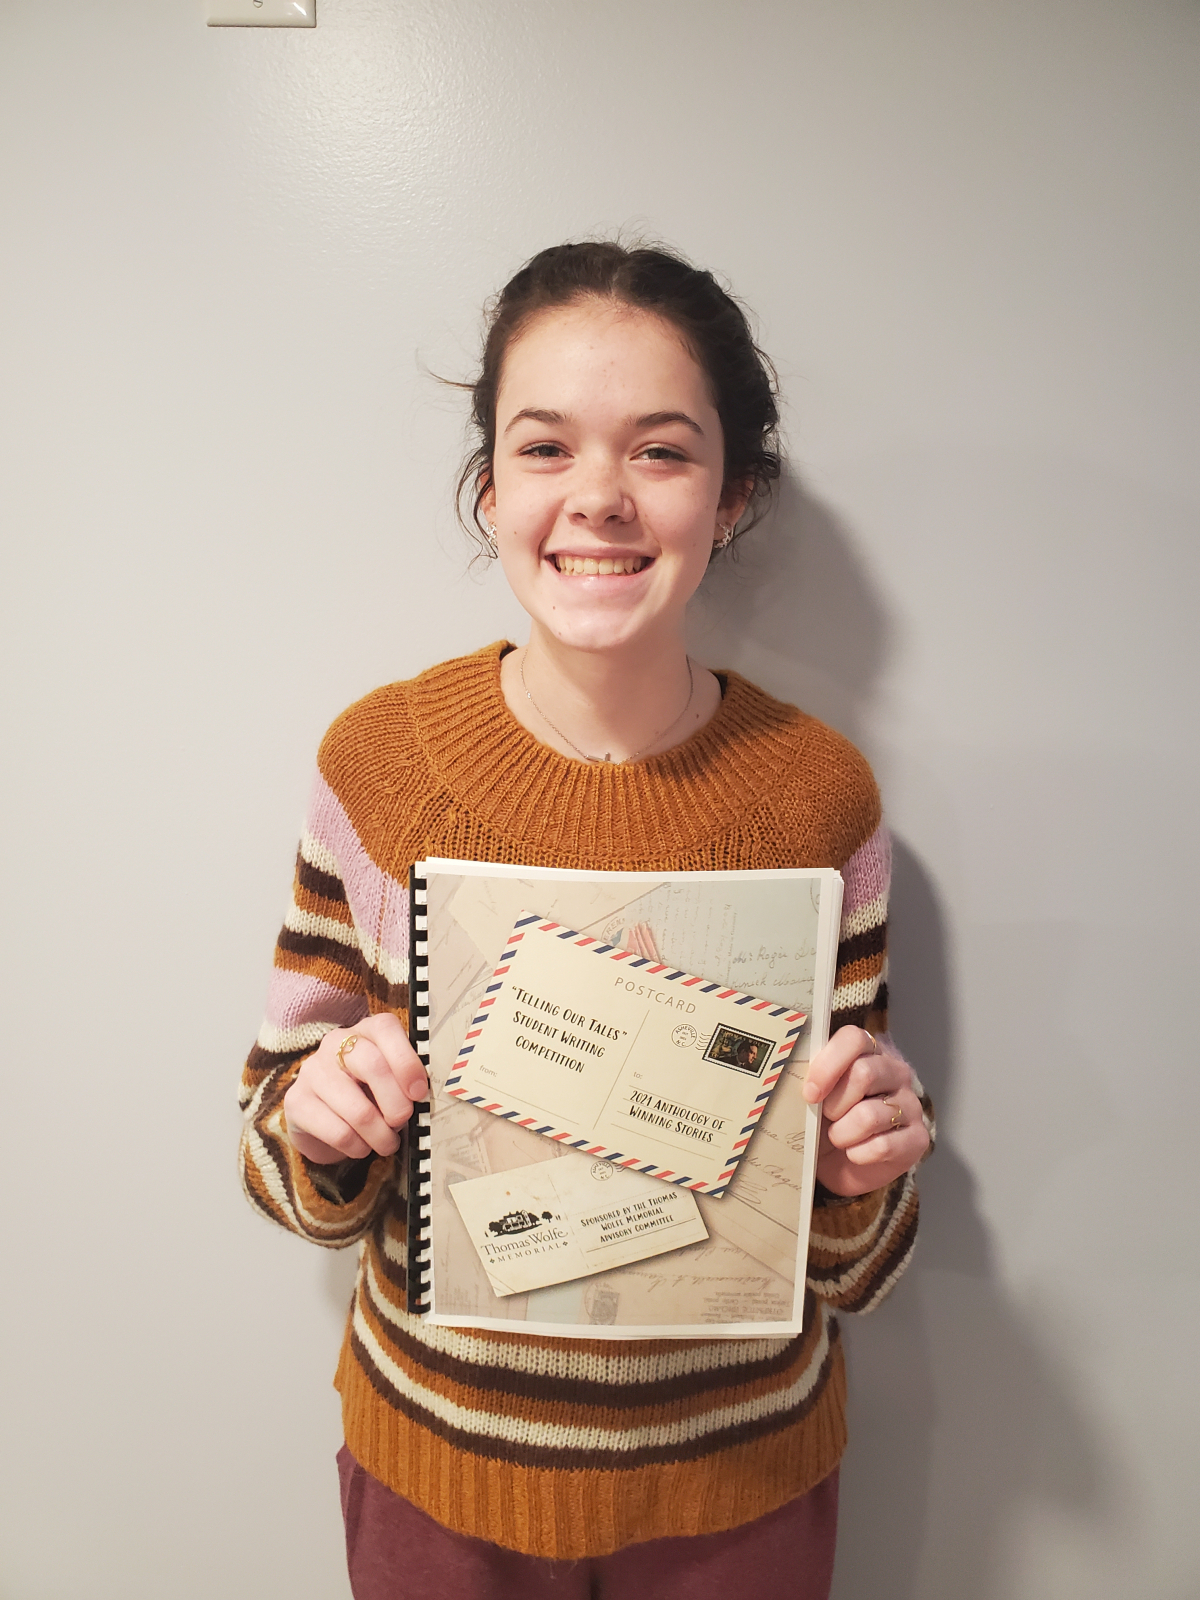 POSTCARD
"TELLING OUR TALES"
STUDENT WRITING
COMPETITION
from:
ASHEVILLE
N.C.
to:
2021 ANTHOLOGY OF
WINNING STORIES
Thomas Wolfe
MEMORIAL
SPONSORED BY THE THOMAS
WOLFE MEMORIAL
ADVISORY COMMITTEE